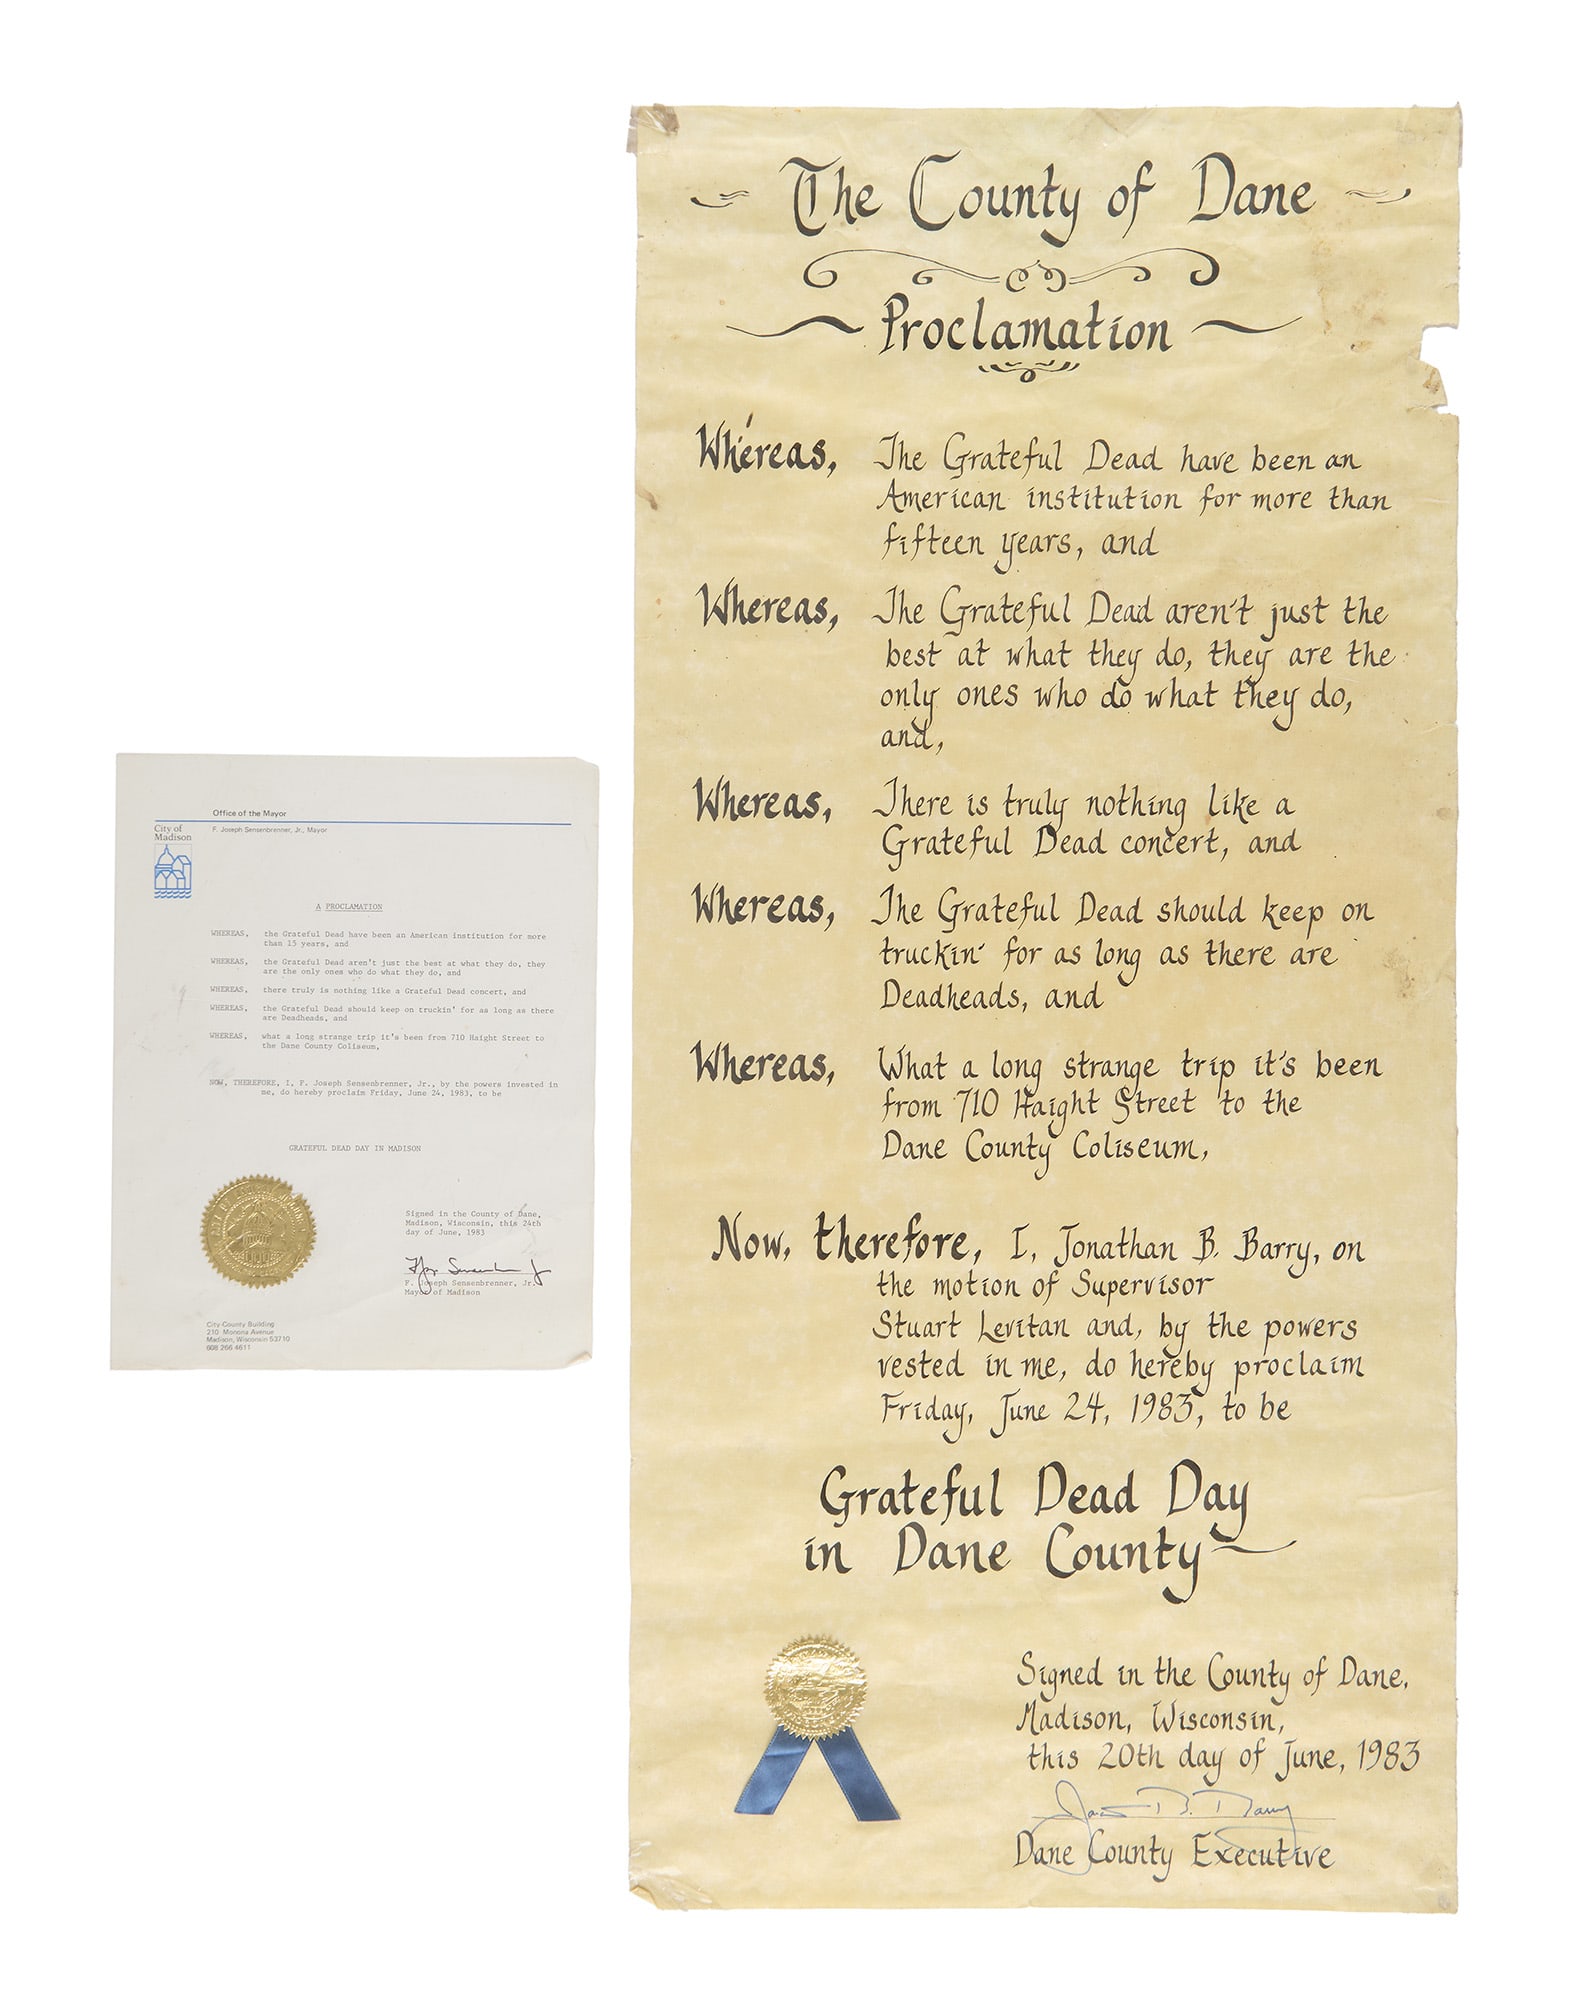 Office of the Mayor
F. Joseph Sensenbrenner, Jr., Mayor
City of
Madison
A PROCLAMATION
WHEREAS, the Grateful Dead have been an American institution for more
than 15 years, and
WHEREAS, the Grateful Dead aren't just the best at what they do, they
are the only ones who do what they do, and
WHEREAS, there truly is nothing like a Grateful Dead concert, and
WHEREAS, the Grateful Dead should keep on truckin' for as long as there
are Deadheads, and
WHEREAS, what a long strange trip it's been from 710 Haight Street to
the Dane County Coliseum,
NOW, THEREFORE, I, F. Joseph Sensenbrenner, Jr., by the powers invested in
me, do hereby proclaim Friday, June 24, 1983, to be
GRATEFUL DEAD DAY IN MADISON
Signed in the County of Dane,
Madison, Wisconsin, this 24th
day of June, 1983
F. Joseph Sensenbrenner, Jr.
Mayor of Madison
City-County Building
210 Monona Avenue
Madison, Wisconsin 53710
608 266 4611
The County of Dane
Proclamation
Whereas, The Grateful Dead have been an
American institution for more than
fifteen years, and
Whereas, The Grateful Dead aren't just the
best at what they do, they are the
only ones who do what they do,
and,
Whereas, There is truly nothing like a
Grateful Dead concert, and
Whereas, The Grateful Dead should keep on
truckin' for as long as there are
Deadheads, and
Whereas, What a long strange trip it's been
from 710 Haight Street to the
Dane County Coliseum,
Now, therefore, I, Jonathan B. Barry, on
the motion of Supervisor
Stuart Levitan and, by the powers
vested in me, do hereby proclaim
Friday, June 24, 1983, to be
Grateful Dead Day
in Dane County
Signed in the County of Dane,
Madison, Wisconsin,
this 20th day of June, 1983
Dane County Executive